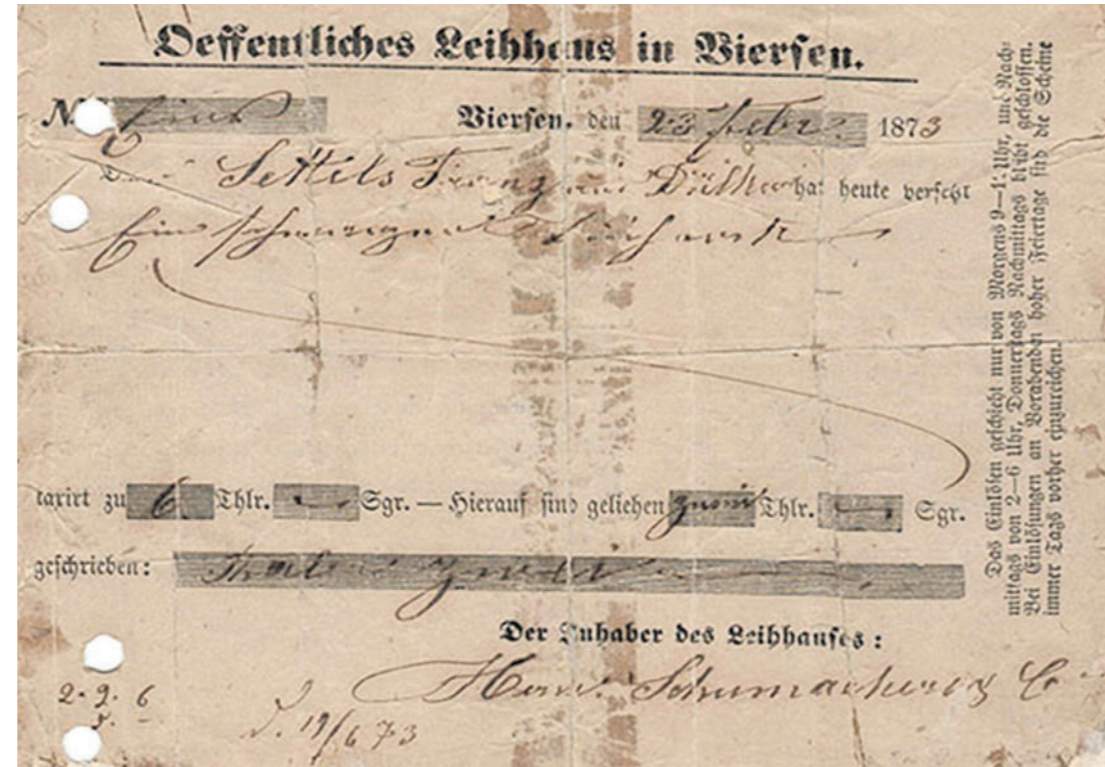 Oeffentliches Leihhaus in Viersen.
Viersen, den 23 Febr. 1873
Settels Franz aus Dülken hat heute versetzt
Ein
taxirt zu 6 Thlr. — Sgr. — Hierauf sind geliehen zwei Thlr. — Sgr.
geschrieben: Thaler zwei
Der Inhaber des Leihhauses:
Herm. Schumacher & Co
2. 9. 6
19/6 73
Das Einlösen geschieht nur von Morgens 9—1 Uhr, und Nach-
mittags von 2—6 Uhr, Donnerstags Nachmittags bleibt geschlossen.
Bei Einlösungen an Vorabenden hoher Feiertage sind die Scheine
immer Tags vorher einzureichen.